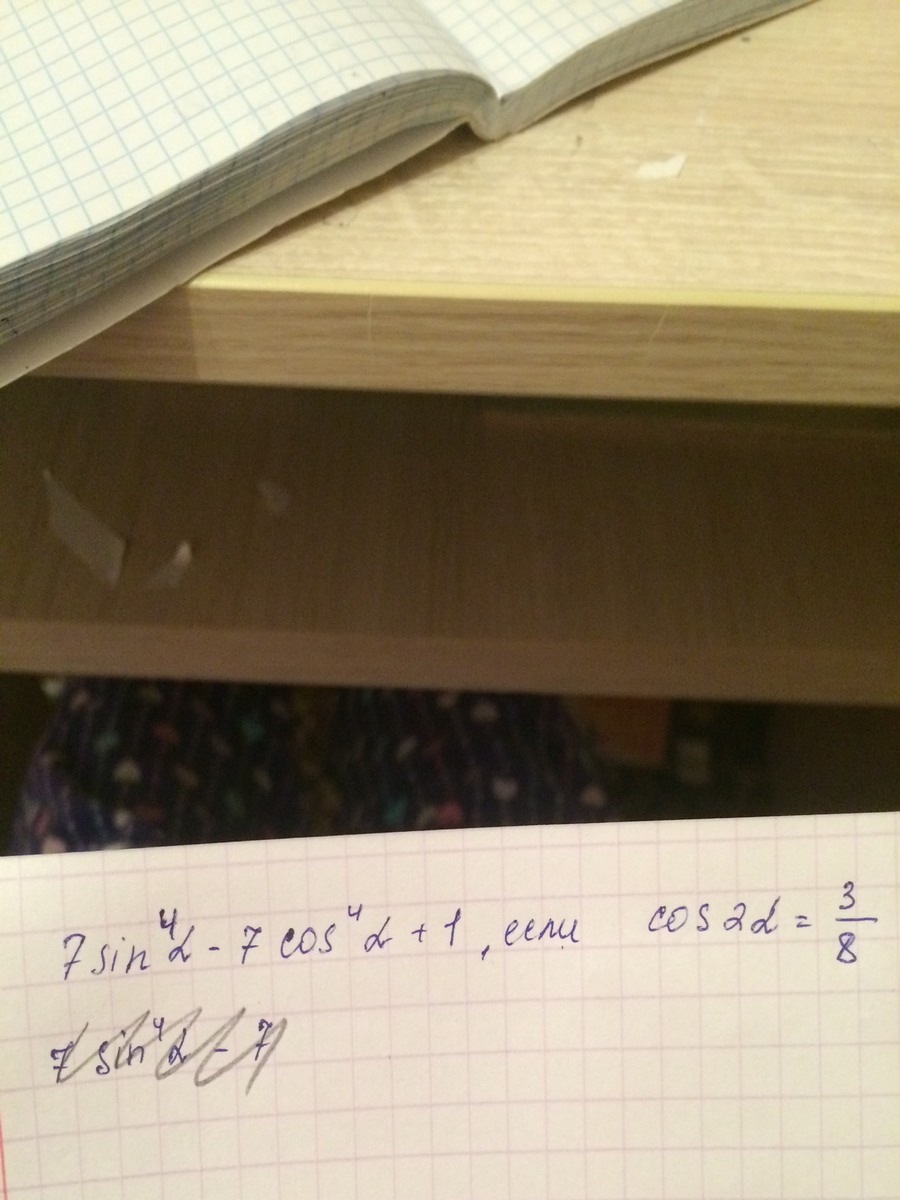 7 sin⁴α - 7 cos⁴α + 1, если cos 2α = 3/8
7 sin⁴α - 7